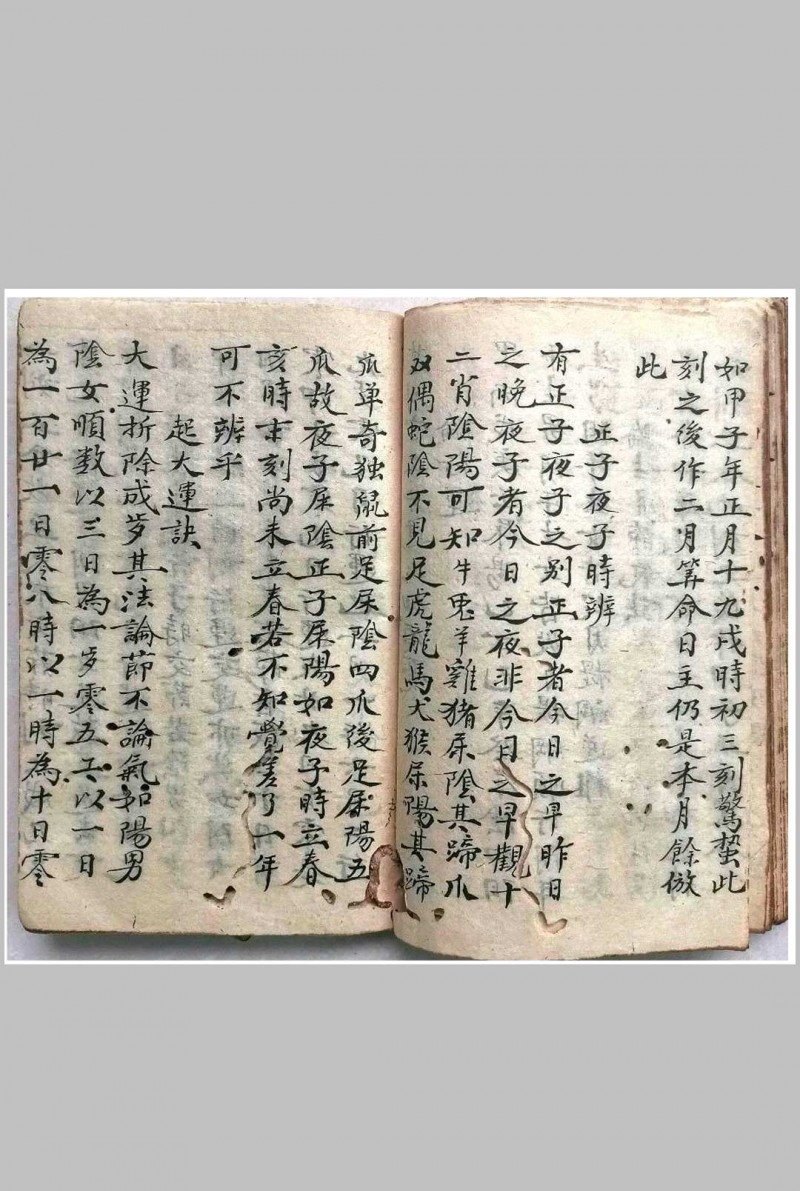 如甲子年正月十九戌時初三刻驚蟄此
刻之後作二月筭命日主仍是本月餘倣
此
正子夜子時辨
有正子夜子之别正子者今日之早昨日
之晚夜子者今日之夜非今日之早觀十
二肖陰陽可知牛兎羊雞猪屎陰其蹄爪
双偶蛇陰不見足虎龍馬犬猴屎陽其蹄
爪单奇独鼠前足屎陰四爪後足屎陽五
爪故夜子屎陰正子屎陽如夜子時立春
亥時末刻尚未立春若不知覺差了一年
可不辨乎
起大運訣
大運折除成岁其法論節不論氣如陽男
陰女順数以三日為一岁零五 以一日
為一百廿一日零八時以一時為十日零